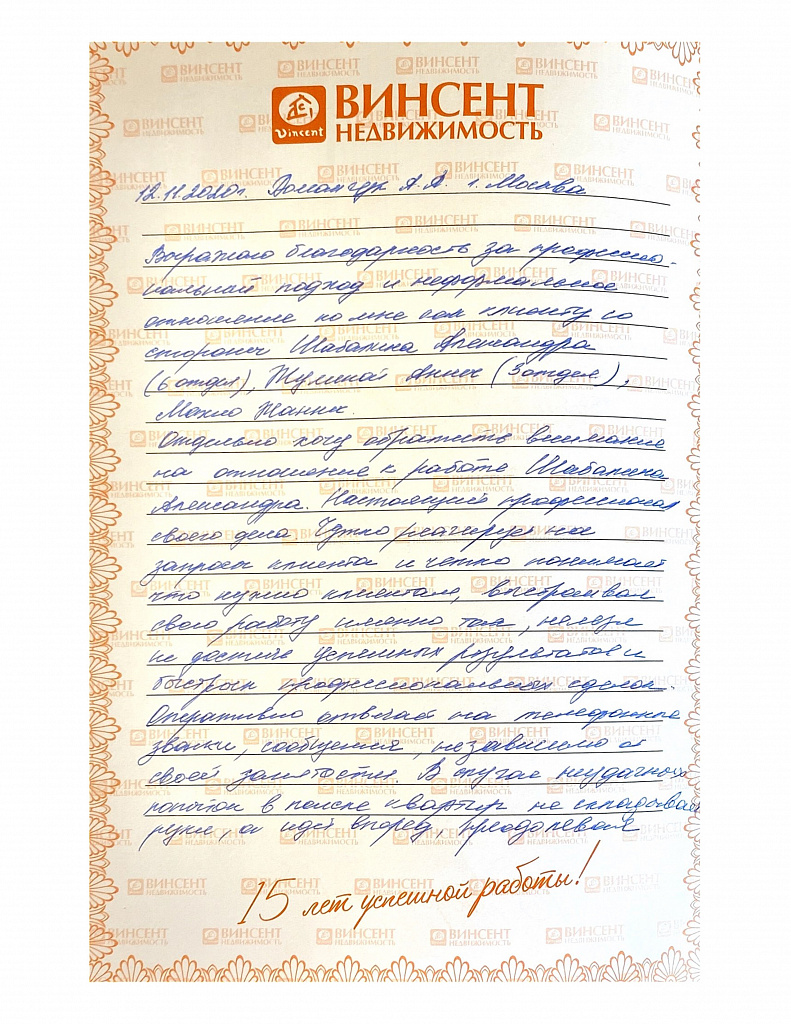 ВИНСЕНТ
НЕДВИЖИМОСТЬ
Vincent
12.11.2020г. А.А. г. Москва
Выражаю благодарность за професси-
нальный подход и неформальное
отношение ко мне как клиенту со
стороны Шабалина Александра
(6 отдел), Анне (3 отдел),
Жанне.
Отдельно хочу обратить внимание
на отношение к работе Шабалина
Александра. Настоящий профессионал
своего дела. Чутко реагирует на
запросы клиента и четко понимает
что нужно клиентам, выстраивая
свою работу именно так, нельзя
не достичь успешных результатов и
быстрых профессиональных сделок.
Оперативно отвечает на телефонные
звонки, сообщения, независимо от
своей занятости. В случае неудачных
попыток в поиске квартир не складывая
руки, а идёт вперед, преодолевая
15 лет успешной работы!